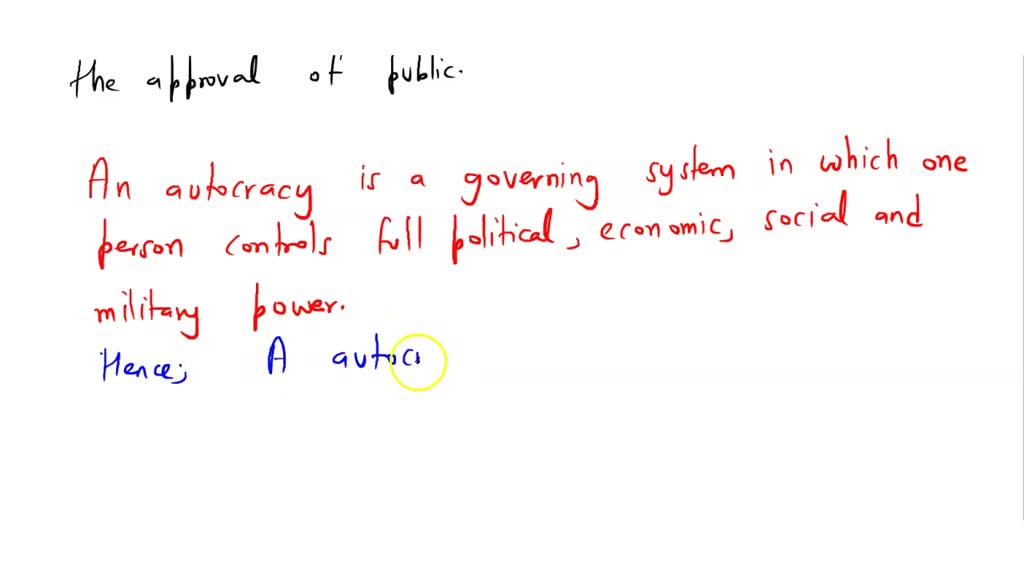 the approval of public.
An autocracy is a governing system in which one
person controls full political, economic, social and
military power.
Hence; A autoc